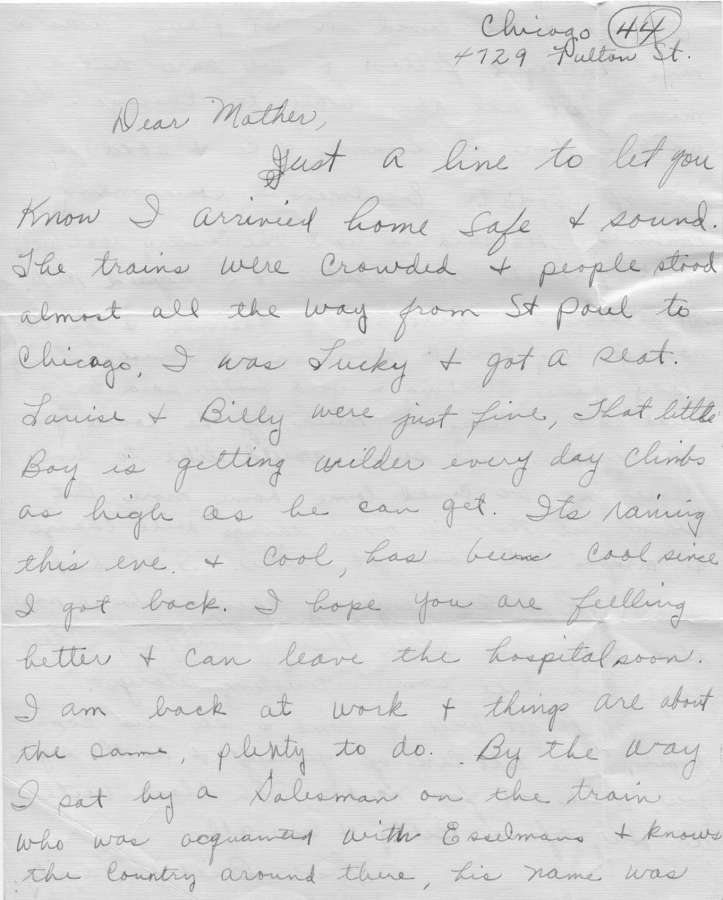 Chicago 44
4729 Fulton St.
Dear Mother,
Just a line to let you
Know I arrivied home safe & sound.
The trains were Crowded & people stood
almost all the way from St Paul to
Chicago, I was Lucky & got a seat.
Louise & Billy were just fine, That little
Boy is getting wilder every day Climbs
as high as he can get. Its raining
this eve. & Cool, has been Cool since
I got back. I hope you are felling
better & can leave the hospital soon.
I am back at work & things are about
the same, plenty to do. By the way
I sat by a Salesman on the train
who was acquanted with Esselmans & knows
the Country around there, his name was